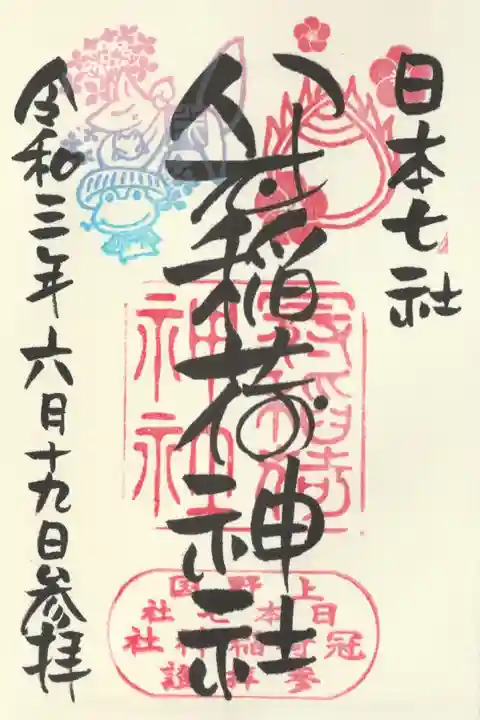 日本七社
冠稲荷神社
令和三年六月十九日参拝
神社
上野国
日本七社
冠稲荷神社